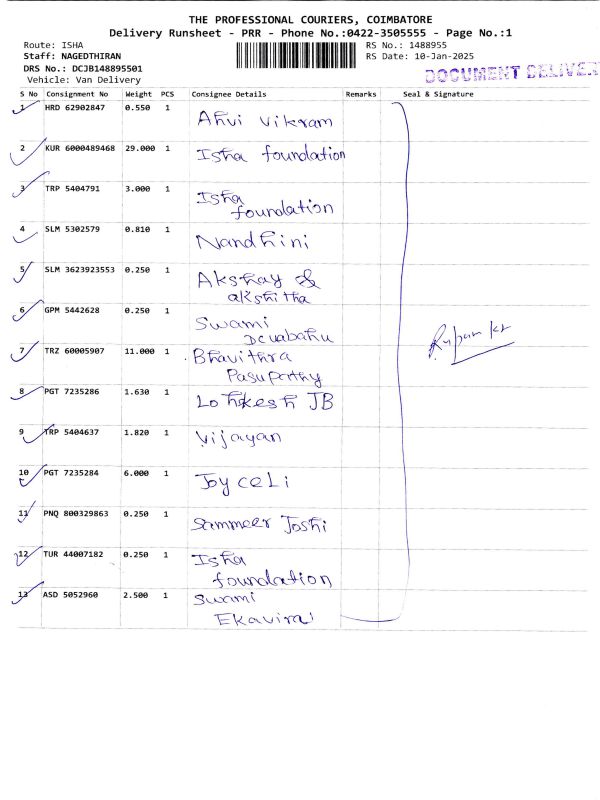 THE PROFESSIONAL COURIERS, COIMBATORE
Delivery Runsheet - PRR - Phone No.:0422-3505555 - Page No.:1
Route: ISHA
RS No.: 1488955
Staff: NAGEDTHIRAN
RS Date: 10-Jan-2025
DRS No.: DCJB148895501
Vehicle: Van Delivery
DOCUMENT DELIVER
S No Consignment No Weight PCS Consignee Details Remarks Seal & Signature
1 HRD 62902847 0.550 1 Ahvi Vikram
2 KUR 6000489468 29.000 1 Isha foundation
3 TRP 5404791 3.000 1 Isha
foundation
4 SLM 5302579 0.810 1 Nandhini
5 SLM 3623923553 0.250 1 Akshay &
akshitha
6 GPM 5442628 0.250 1 Swami
Devabahu
7 TRZ 60005907 11.000 1 Bhavithra
Pasupathy
8 PGT 7235286 1.630 1 JB
9 TRP 5404637 1.820 1 Vijayan
10 PGT 7235284 6.000 1 Joyceli
11 PNQ 800329863 0.250 1 Sammeer Joshi
12 TUR 44007182 0.250 1 Isha
foundation
13 ASD 5052960 2.500 1 Swami
Ekavira